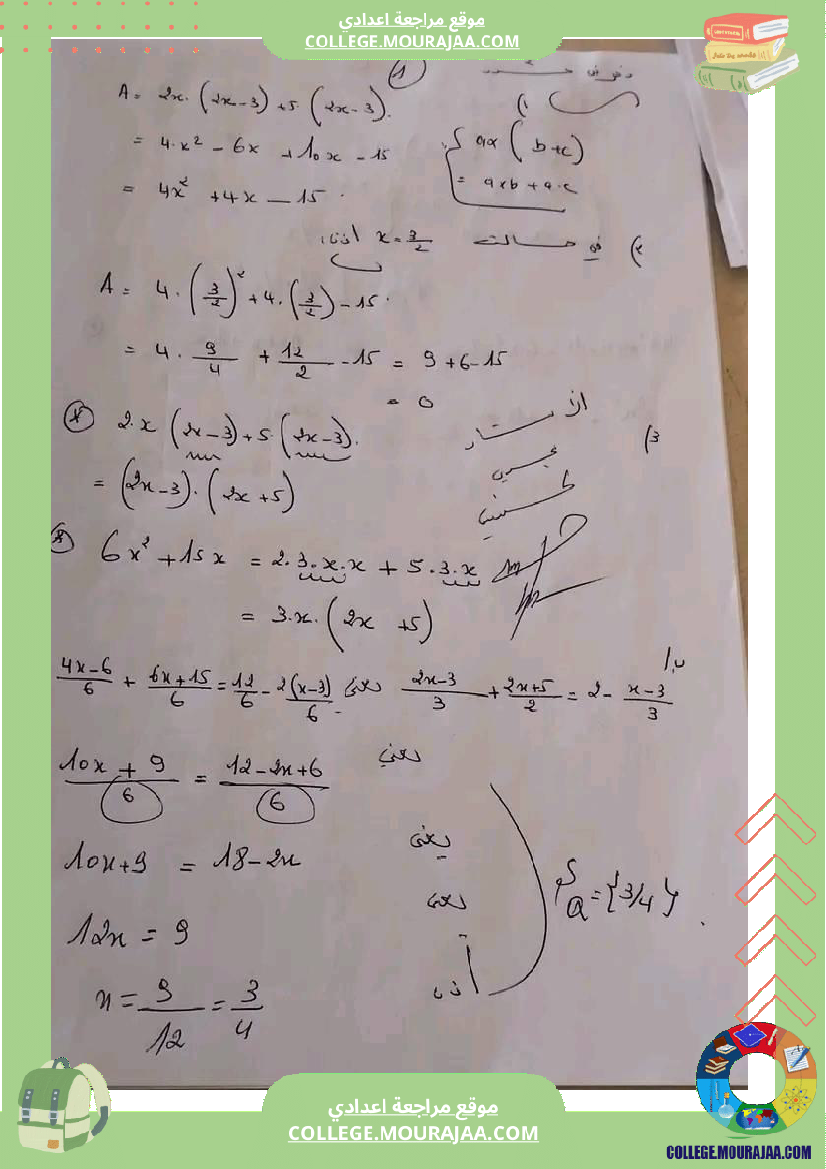 موقع مراجعة اعدادي
COLLEGE.MOURAJAA.COM
1
1)
A = 2x · (2x-3) + 5 · (2x-3).
= 4·x² - 6x + 10x - 15
= 4x² + 4x - 15 ·
a x (b+c)
= a x b + a·c
2) في حالت x = 3/2 اذن:
A = 4 · (3/2)² + 4 · (3/2) - 15 ·
= 4 · 9/4 + 12/2 - 15 = 9 + 6 - 15
= 0
3)
2·x (2x-3) + 5 · (2x-3).
= (2x-3) · (2x+5)
6x² + 15x = 2·3·x·x + 5·3·x
= 3·x · (2x + 5)
(2x-3)/3 + (2x+5)/2 = 2 - (x-3)/3
يعني (4x-6)/6 + (6x+15)/6 = 12/6 - 2(x-3)/6
يعني (10x + 9)/6 = (12-2x+6)/6
يعني 10x+9 = 18-2x
يعني 12x = 9
أذن x = 9/12 = 3/4
Q = {3/4}
موقع مراجعة اعدادي
COLLEGE.MOURAJAA.COM
COLLEGE.MOURAJAA.COM